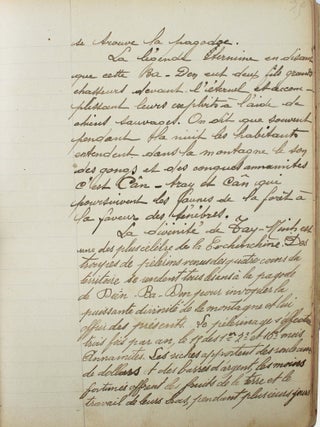 se trouve la pagodge.
La légende termine en disant
que cette Ba-Den eut deux fils grands
chasseurs devant l'éternel et accom-
plissant leurs exploits à l'aide de
chiens sauvages. On dit que souvent
pendant la nuit les habitants
entendent dans la montagne le son
des gongs et des conques annamites
c'est Càn-tray et Cân que
poursuivent les faunes de la forêt à
la faveur des ténèbres.
La divinité de Tay-Ninh est
une des plus célèbre de la Cochinchine. Des
troupes de pélerins venus des quatre coins du
territoire se rendent tous les ans à la pagode
de Dèn-Ba-Den pour invoquer la
puissante divinité de la montagne et lui
offrir des presents. Le pélerinage s'effectue
trois fois par an, le 1er des 1er et 10e mois
Annamites. Les riches apportent des rouleaux
de dollars et des barres d'argent, les moins
fortunés offrent les fruits de la terre et le
travail de leurs bras, pendant plusieurs jours